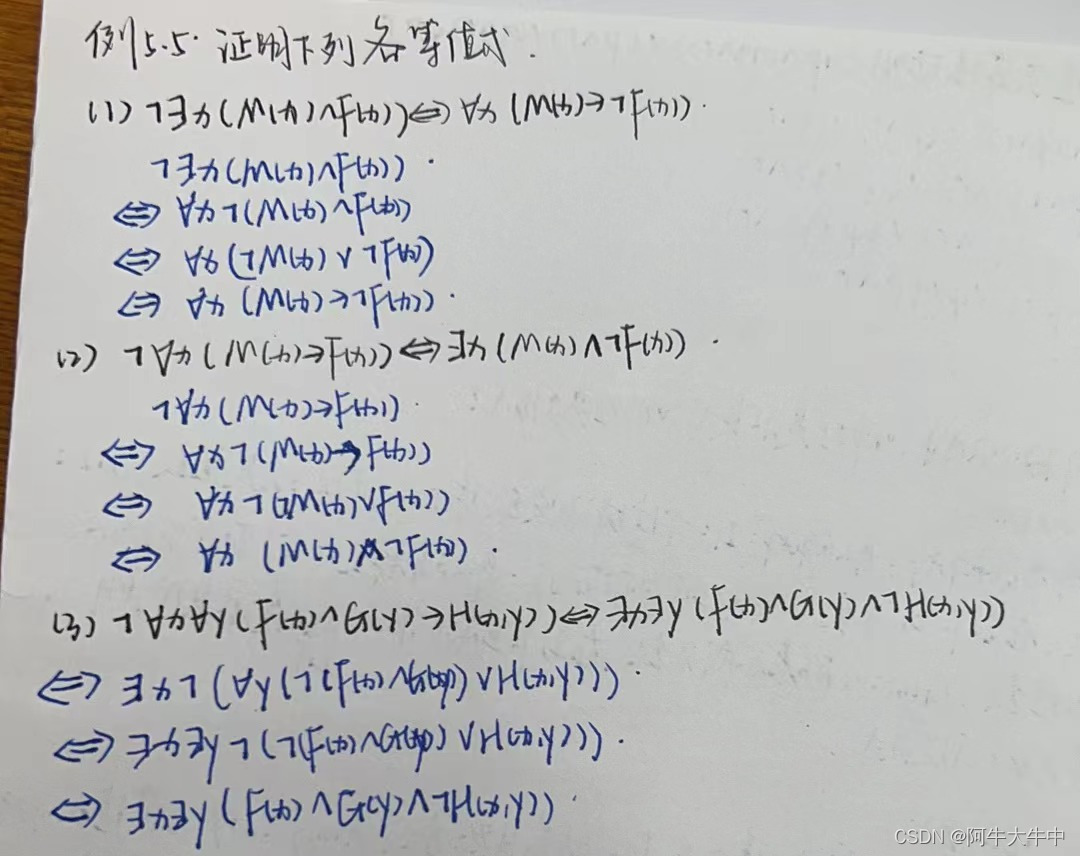 例5.5 证明下列各等值式.
(1) ¬∃x(M(x)∧F(x))⇔∀x(M(x)→¬F(x)).
¬∃x(M(x)∧F(x)).
⇔ ∀x¬(M(x)∧F(x))
⇔ ∀x(¬M(x)∨¬F(x))
⇔ ∀x(M(x)→¬F(x)).
(2) ¬∀x(M(x)→F(x))⇔∃x(M(x)∧¬F(x)).
¬∀x(M(x)→F(x)).
⇔ ∀x¬(M(x)→F(x))
⇔ ∀x¬(¬M(x)∨F(x))
⇔ ∀x(M(x)∧¬F(x)).
(3) ¬∀x∀y(F(x)∧G(y)→H(x,y))⇔∃x∃y(F(x)∧G(y)∧¬H(x,y))
⇔ ∃x¬(∀y(¬(F(x)∧G(y))∨H(x,y))).
⇔ ∃x∃y¬(¬(F(x)∧G(y))∨H(x,y))).
⇔ ∃x∃y(F(x)∧G(y)∧¬H(x,y)).
CSDN @阿牛大牛中